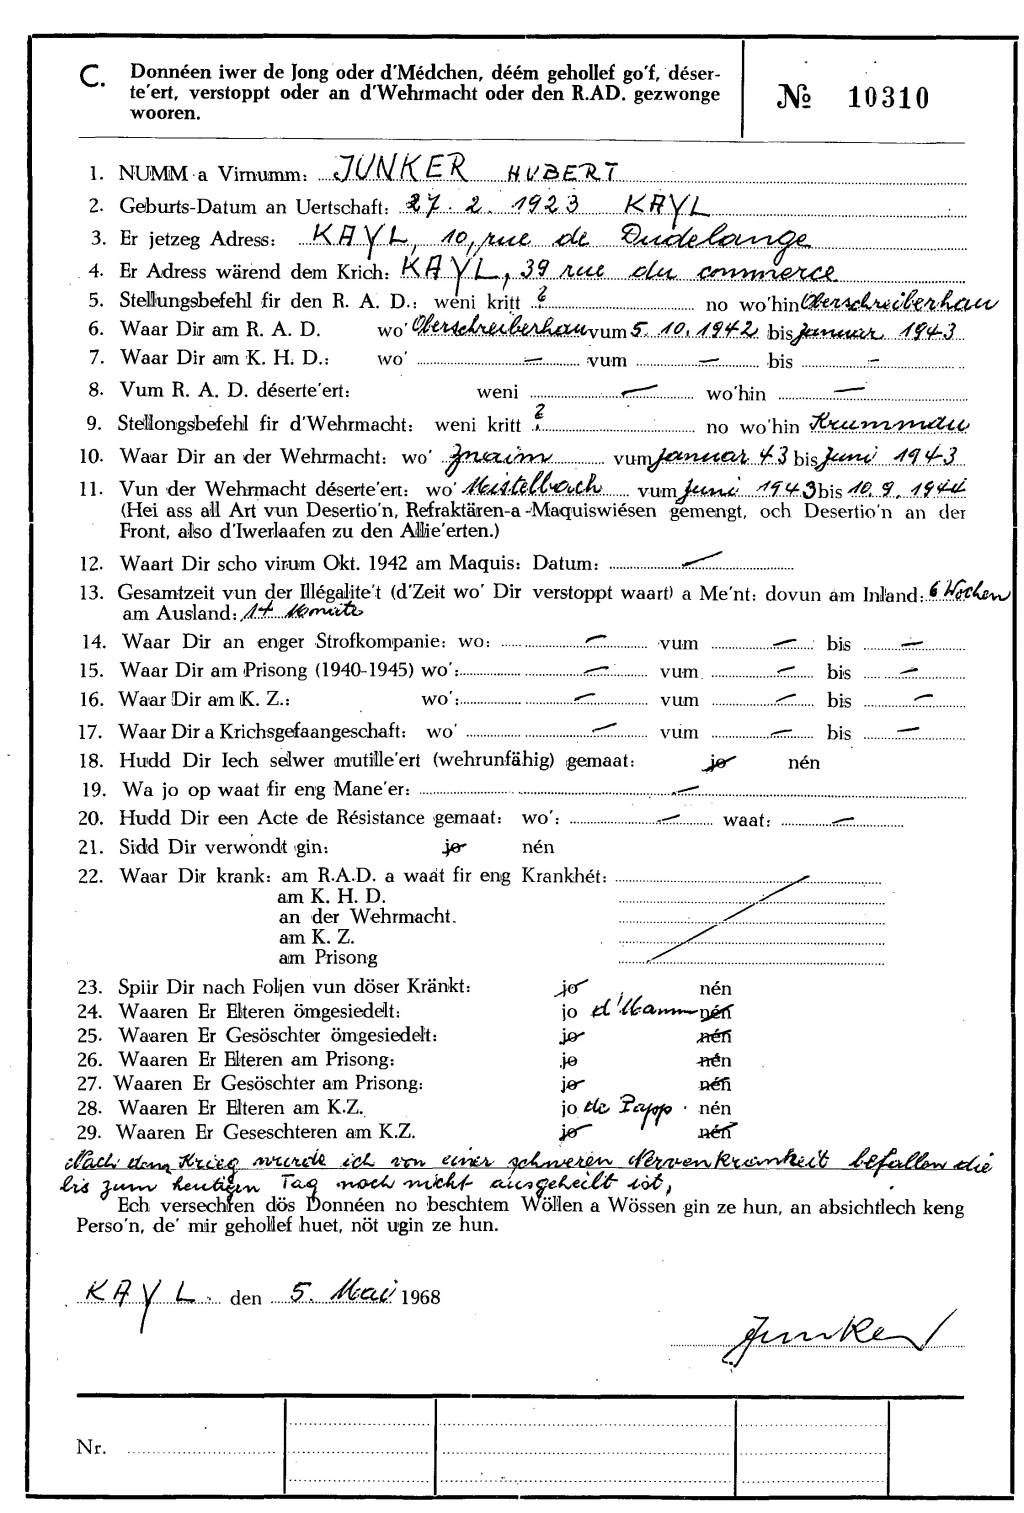 C. Donnéen iwer de Jong oder d'Médchen, déém gehollef go'f, déser-
te'ert, verstoppt oder an d'Wehrmacht oder den R.AD. gezwonge
wooren.
№ 10310
1. NUMM a Virnumm: JUNKER HUBERT
2. Geburts-Datum an Uertschaft: 27. 2. 1923 KAYL
3. Er jetzeg Adress: KAYL, 10, rue de Dudelange
4. Er Adress wärend dem Krich: KAYL, 39 rue du commerce
5. Stellungsbefehl fir den R. A. D.: weni kritt ? no wo'hin Oberschreiberhau
6. Waar Dir am R. A. D. wo' Oberschreiberhau vum 5. 10. 1942 bis Januar 1943
7. Waar Dir am K. H. D.: wo' — vum — bis —
8. Vum R. A. D. déserte'ert: weni — wo'hin —
9. Stellongsbefehl fir d'Wehrmacht: weni kritt ? no wo'hin Krummau
10. Waar Dir an der Wehrmacht: wo' Znaim vum Januar 43 bis Juni 1943
11. Vun der Wehrmacht déserte'ert: wo' Meistelbach vum Juni 1943 bis 10. 9. 1944
(Hei ass all Art vun Desertio'n, Refraktären-a-Maquiswiésen gemengt, och Desertio'n an der
Front, also d'Iwerlaafen zu den Allie'erten.)
12. Waart Dir scho virum Okt. 1942 am Maquis: Datum: —
13. Gesamtzeit vun der Illégalite't (d'Zeit wo' Dir verstoppt waart) a Me'nt: dovun am Inland: 6 Wochen
am Ausland: 14 Monate
14. Waar Dir an enger Strofkompanie: wo: — vum — bis —
15. Waar Dir am Prisong (1940-1945) wo': — vum — bis —
16. Waar Dir am K. Z.: wo': — vum — bis —
17. Waar Dir a Krichsgefaangeschaft: wo' — vum — bis —
18. Hudd Dir Iech selwer mutille'ert (wehrunfähig) gemaat: jo nén
19. Wa jo op waat fir eng Mane'er: —
20. Hudd Dir een Acte de Résistance gemaat: wo': — waat: —
21. Sidd Dir verwondt gin: jo nén
22. Waar Dir krank: am R.A.D. a waat fir eng Krankhét:
am K. H. D.
an der Wehrmacht.
am K. Z.
am Prisong
23. Spiir Dir nach Foljen vun döser Kränkt: jo nén
24. Waaren Er Elteren ömgesiedelt: jo d'Mamm nén
25. Waaren Er Gesöschter ömgesiedelt: jo nén
26. Waaren Er Elteren am Prisong: jo nén
27. Waaren Er Gesöschter am Prisong: jo nén
28. Waaren Er Elteren am K.Z. jo de Papp. nén
29. Waaren Er Geseschteren am K.Z. jo nén
Nach dem Krieg wurde ich von einer schweren Nervenkrankeit befallen die
bis zum heutigen Tag noch nicht ausgeheilt ist,
Ech versechren dös Donnéen no beschtem Wöllen a Wössen gin ze hun, an absichtlech keng
Perso'n, de' mir gehollef huet, nöt ugin ze hun.
KAYL. den 5. Mai 1968
Junker
Nr.